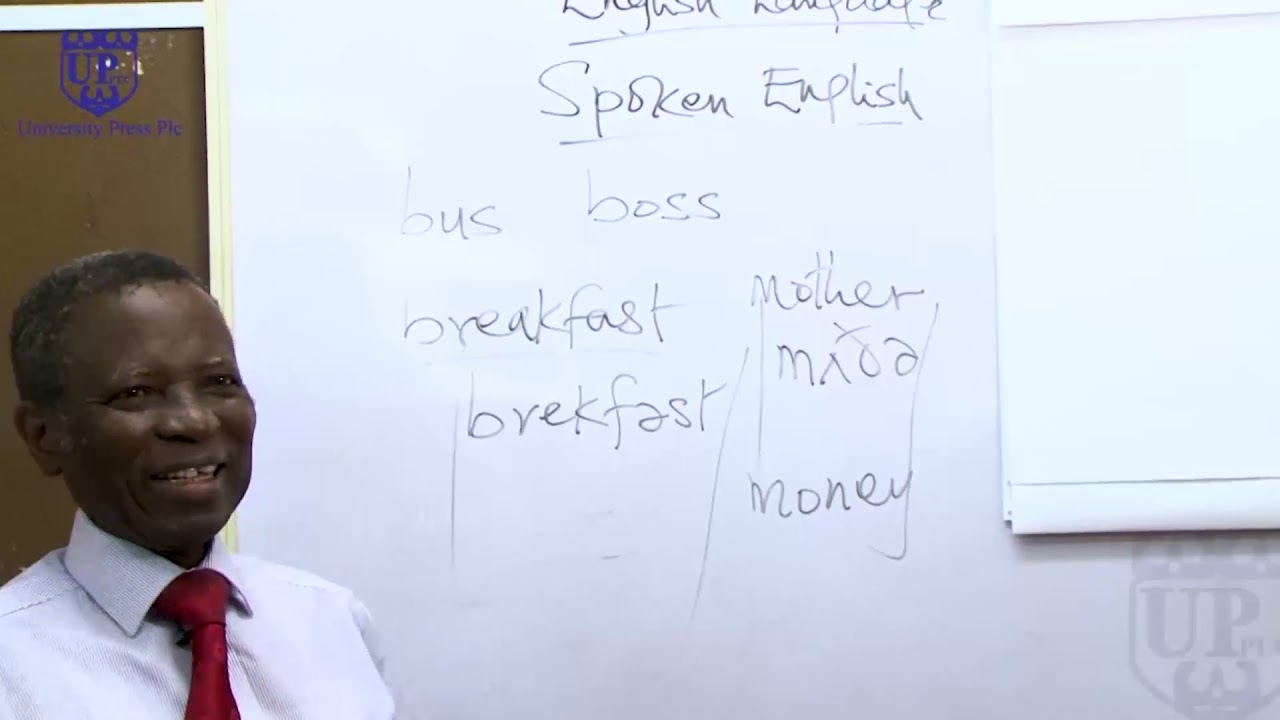 UP
PLC
University Press Plc
English Language
Spoken English
bus boss
breakfast mother
mʌðə
brekfəst
money
UP
PLC